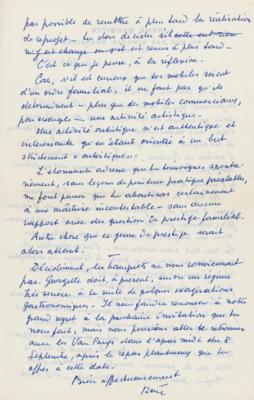 pas possible de remettre à plus tard la réalisation
de ce projet — les dons décidés si cette
n'y est change ou soit est remis à plus tard —
C'est ce que je pense, à la réflexion.
Car, s'il est curieux que des mobiles soient
d'un ordre familial, il ne faut pas qu'ils
déterminent — plus que des mobiles commerciaux,
par exemple — une activité artistique.
Une activité artistique n'est authentique et
intéressante qu'étant orientée à un but
strictement « artistique ».
L'étonnante aisance que tu témoignes sponta-
nément, sans leçon de peinture pratique préalable,
me font penser que tu aboutirais certainement
à une maîtrise incontestable — sans aucun
rapport avec des question de prestige familial.
Autre chose que ce genre de prestige serait
alors atteint.
Décidément, les banquets ne nous conviennent
pas. Georgette doit, à présent, suivre un régime
très sévère à la suite de quelques exagérations
gastronomiques — Il nous faudra renoncer à notre
grand regret à la prochaine invitation que tu
nous fais, mais nous pourrions aller te retrouver
avec les Van Parys dans l'après midi du 8
Septembre, après le repas plantureux que tu
offres à cette date.
Bien affectueusement
René